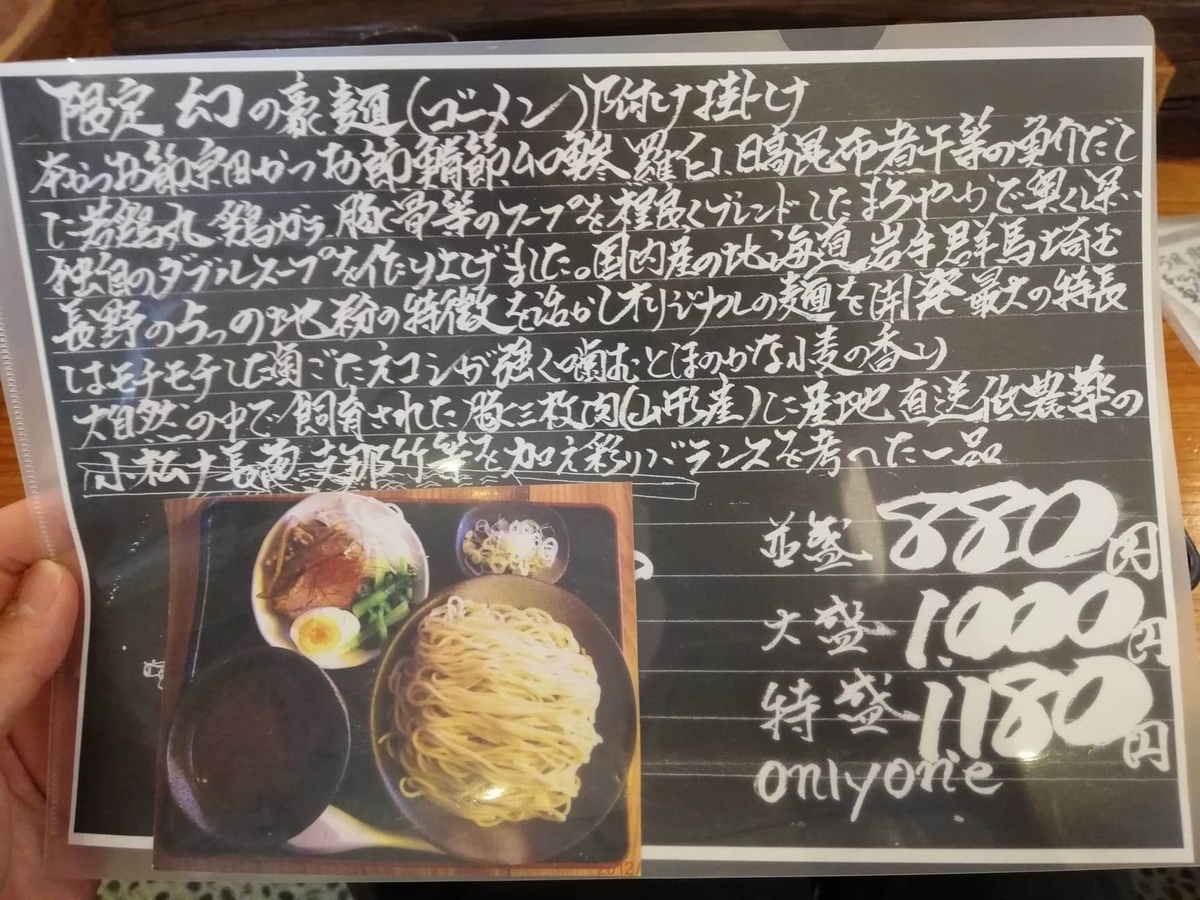 限定 幻の豪麺(ゴーメン)付け掛け
本かつお節宗田かつお節鯖節ムロ鰺、羅臼、日高昆布煮干等の魚介だし
に若鶏丸、鶏ガラ、豚骨等のスープを程良くブレンドしたまろやかで奥く深い
独自のダブルスープを作り上げました。国内産の北海道、岩手群馬埼玉
長野の5つの地粉の特徴を活かしオリジナルの麺を開発最大の特長
はモチモチした歯ごたえコシが強く噛むとほのかな小麦の香り
大自然の中で飼育された豚三枚肉(山形産)に産地直送低農薬の
小松な長葱支那竹等を加え彩りバランスを考へた一品
並盛 880円
大盛 1.000円
特盛 1.180円
only one
2012/